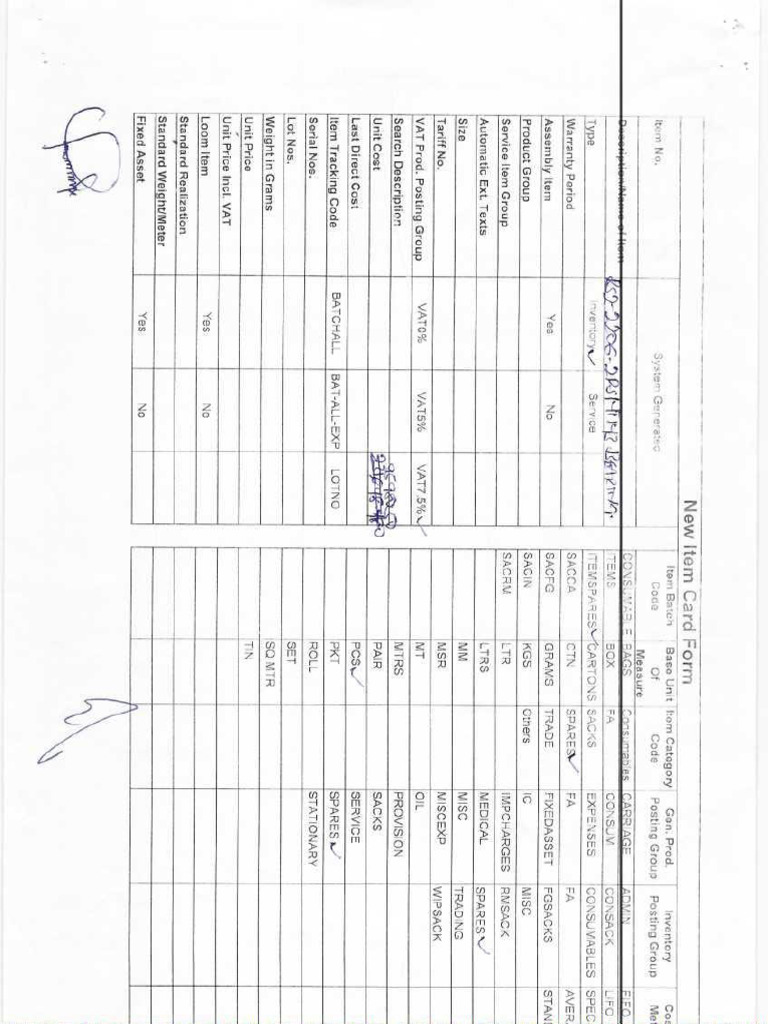 New Item Card Form
Item No. System Generated
Description/Name of Item
Type Inventory ✓ Service
Warranty Period
Assembly Item Yes No
Product Group
Service Item Group
Automatic Ext. Texts
Size
Tariff No.
VAT Prod. Posting Group VAT0% VAT5% VAT7.5% ✓
Search Description
Unit Cost
Last Direct Cost
Item Tracking Code BATCHALL BAT-ALL-EXP LOTNO
Serial Nos.
Lot Nos.
Weight in Grams
Unit Price
Unit Price Incl. VAT
Loom Item Yes No
Standard Realization
Standard Weight/Meter
Fixed Asset Yes No
Item Batch Code Base Unit Of Measure Item Category Code Gen. Prod. Posting Group Inventory Posting Group
CONSUMABLE BAGS Consumables CARRIAGE ADMIN FIFO
ITEMS BOX FA CONSUM CONSACK LIFO
ITEMSPARES ✓ CARTONS SACKS EXPENSES CONSUMABLES SPEC
SACCA CTN SPARES ✓ FA FA AVER
SACFG GRAMS TRADE FIXEDASSET FGSACKS STAN
SACIN KGS Others IC MISC
SACRM LTR IMPCHARGES RMSACK
LTRS MEDICAL SPARES ✓
MM MISC TRADING
MSR MISCEXP WIPSACK
MT OIL
MTRS PROVISION
PAIR SACKS
PCS ✓ SERVICE
PKT SPARES ✓
ROLL STATIONARY
SET
SQ MTR
TIN